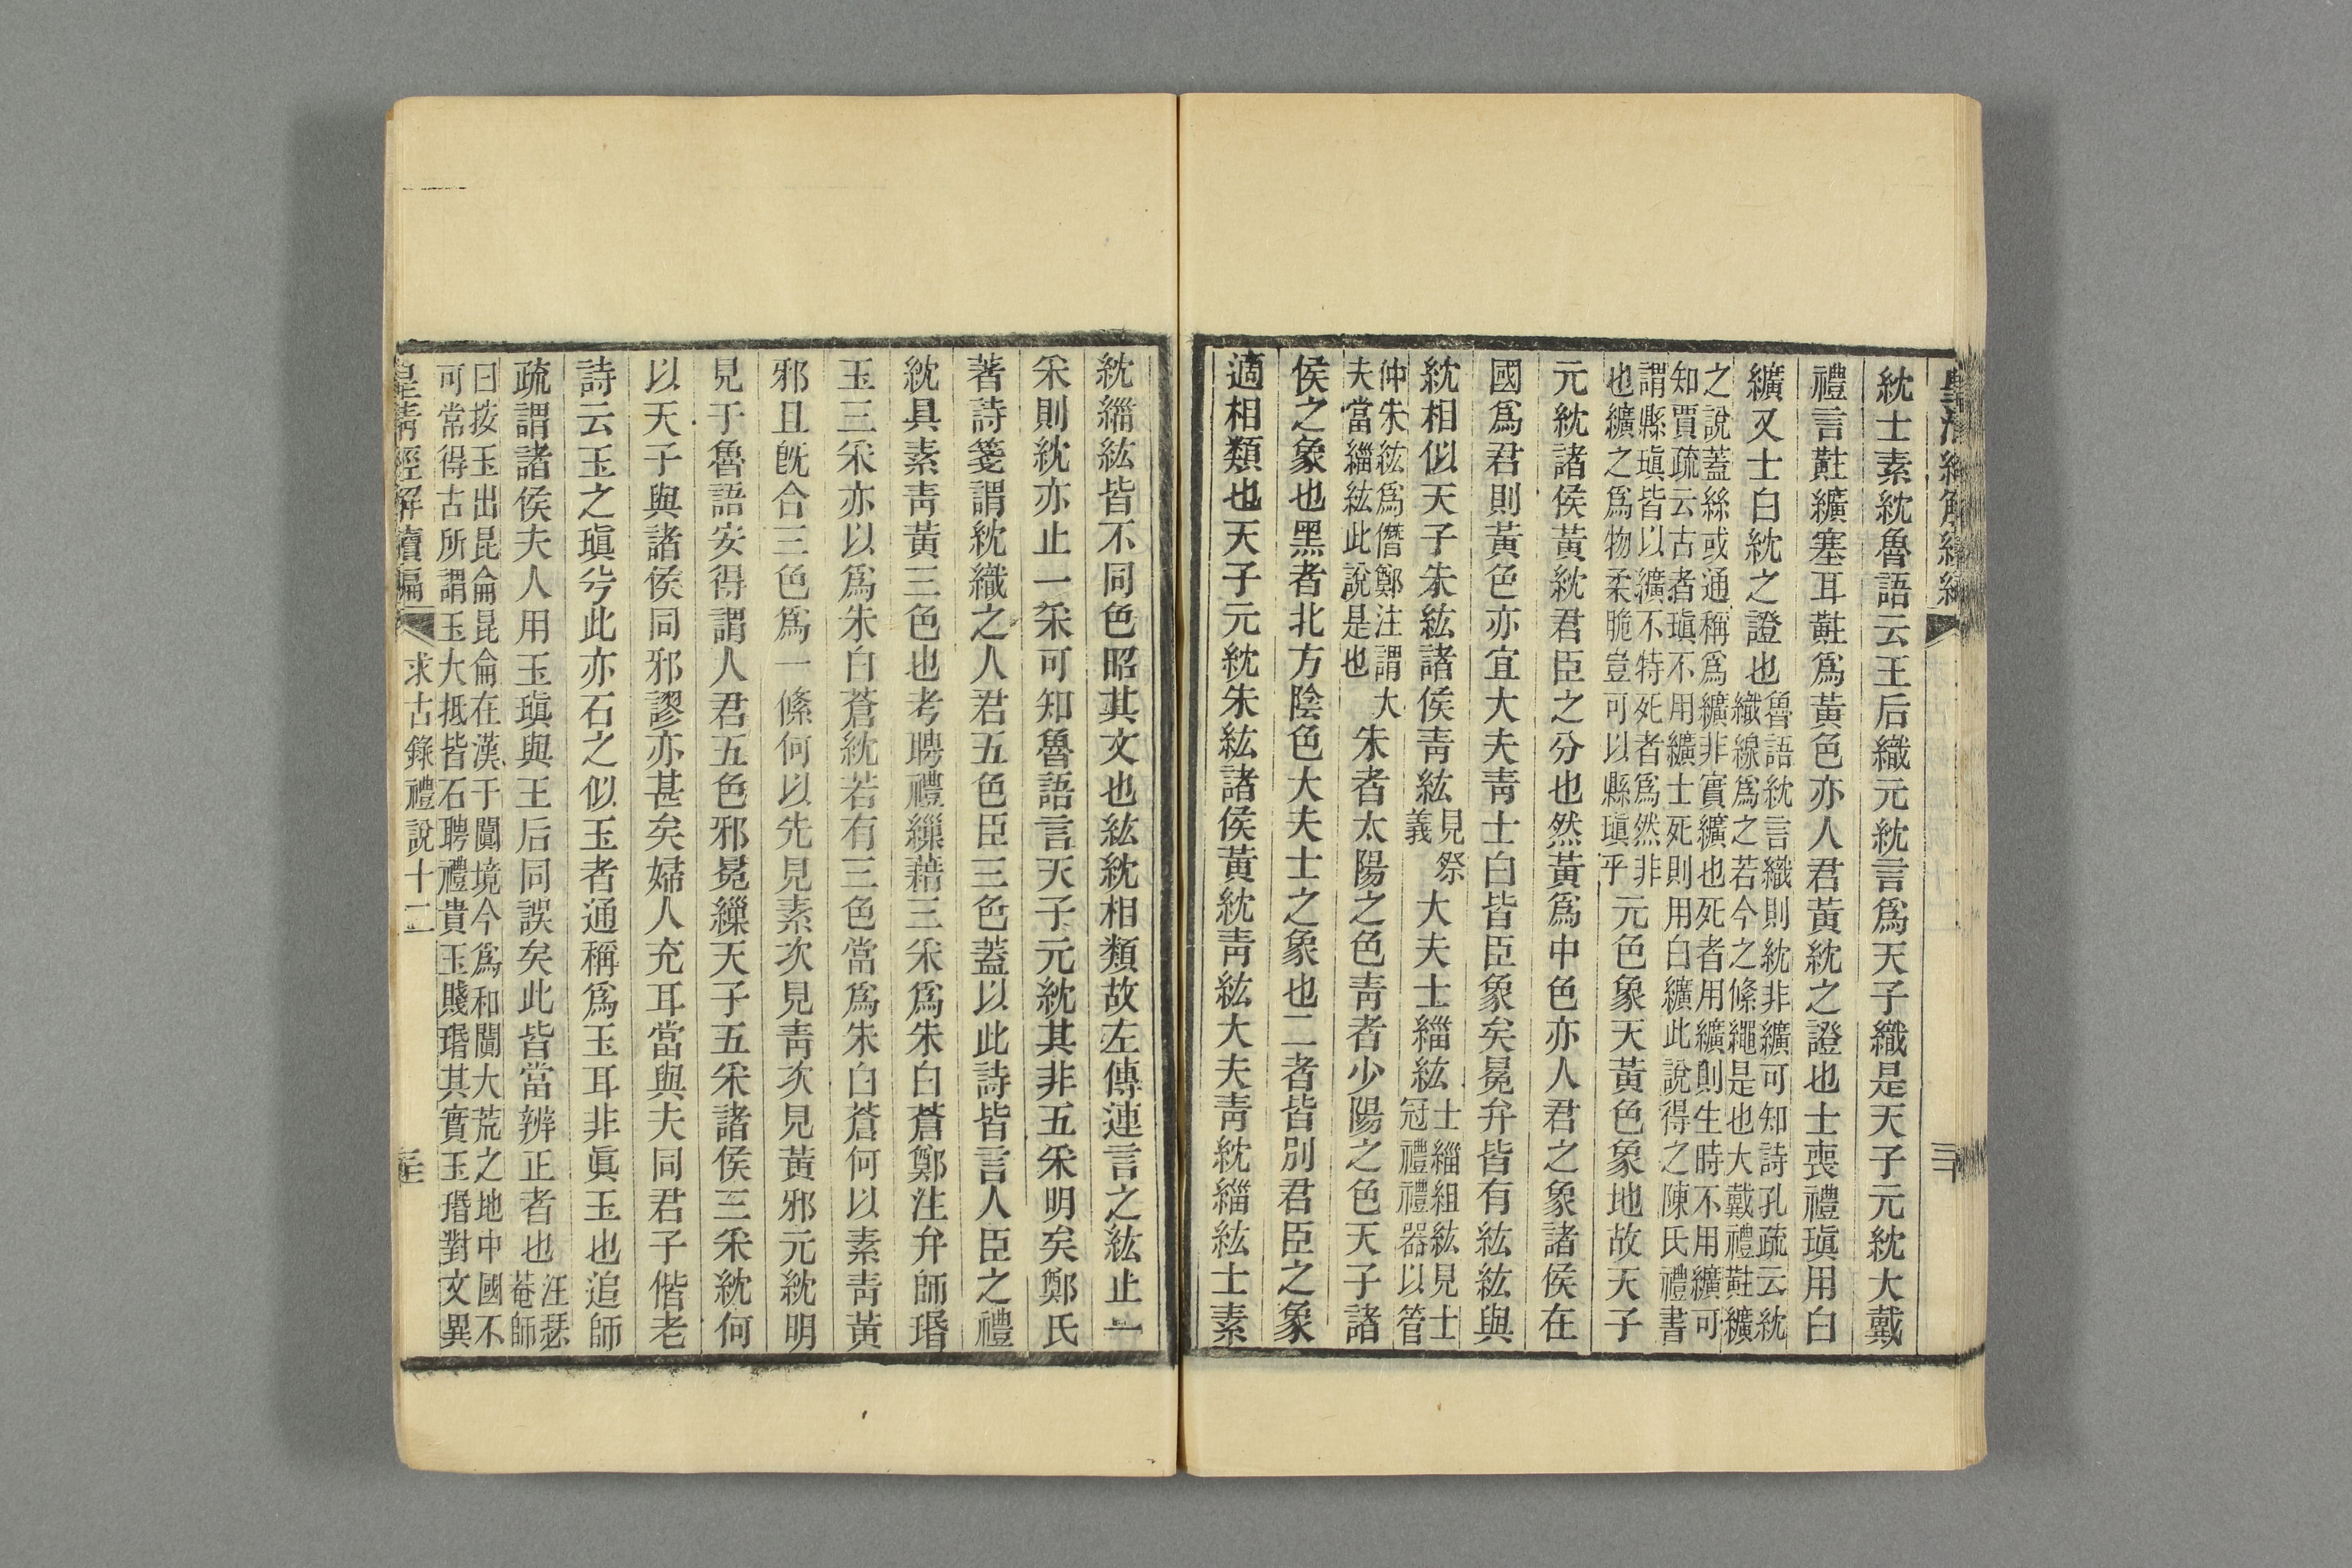 紞士素紞魯語云王后織元紞言爲天子織是天子元紞大戴
禮言黈纊塞耳黈爲黃色亦人君黃紞之證也士喪禮瑱用白
纊又士白紞之證也魯語紞言織則紞非纊可知詩孔疏云紞織線爲之若今之絛繩是也大戴禮黈纊
之說蓋絲或通稱爲纊非實纊也死者用纊則生時不用纊可知賈疏云古者瑱不用纊士死則用白纊此說得之陳氏禮書
謂縣瑱皆以纊不特死者爲然非也纊之爲物柔脆豈可以縣瑱乎元色象天黃色象地故天子
元紞諸侯黃紞君臣之分也然黃爲中色亦人君之象諸侯在
國爲君則黃色亦宜大夫靑士白皆臣象矣冕弁皆有紘紘與
紞相似天子朱紘諸侯靑紘見祭義大夫士緇紘士緇組紘見士冠禮禮器以管
仲朱紘爲僭鄭注謂大夫當緇紘此說是也朱者太陽之色靑者少陽之色天子諸
侯之象也黑者北方陰色大夫士之象也二者皆別君臣之象
適相類也天子元紞朱紘諸侯黃紞靑紘大夫靑紞緇紘士素
紞緇紘皆不同色昭其文也紘紞相類故左傳連言之紘止一
采則紞亦止一采可知魯語言天子元紞其非五采明矣鄭氏
著詩箋謂紞織之人君五色臣三色蓋以此詩皆言人臣之禮
紞具素靑黃三色也考聘禮繅藉三采爲朱白蒼鄭注弁師瑉
玉三采亦以爲朱白蒼紞若有三色當爲朱白蒼何以素靑黃
邪且旣合三色爲一絛何以先見素次見靑次見黃邪元紞明
見于魯語安得謂人君五色邪冕繅天子五采諸侯三采紞何
以天子與諸侯同邪謬亦甚矣婦人充耳當與夫同君子偕老
詩云玉之瑱兮此亦石之似玉者通稱爲玉耳非眞玉也追師
疏謂諸侯夫人用玉瑱與王后同誤矣此皆當辨正者也汪瑟菴師
曰按玉出昆侖昆侖在漢于闐境今爲和闐大荒之地中國不可常得古所謂玉大抵皆石聘禮貴玉賤瑉其實玉瑉對文異
皇淸經解續編 求古錄禮說十二